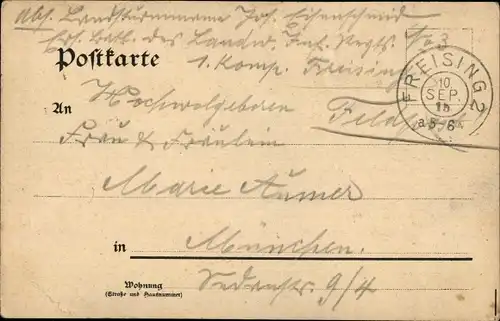 Abs. Landsturmmann Jos. Eisenschmid
Ers. Batl. des Landw. Inf. Regts. No 3
1. Komp. Freising
Postkarte
FREISING 2
10.
SEP.
15
a 5-6
An
Hochwolgeboren
Feldpost
Frau & Fräulein
Marie Aumer
in
München.
Wohnung
(Straße und Hausnummer)
Sedanstr. 9/4